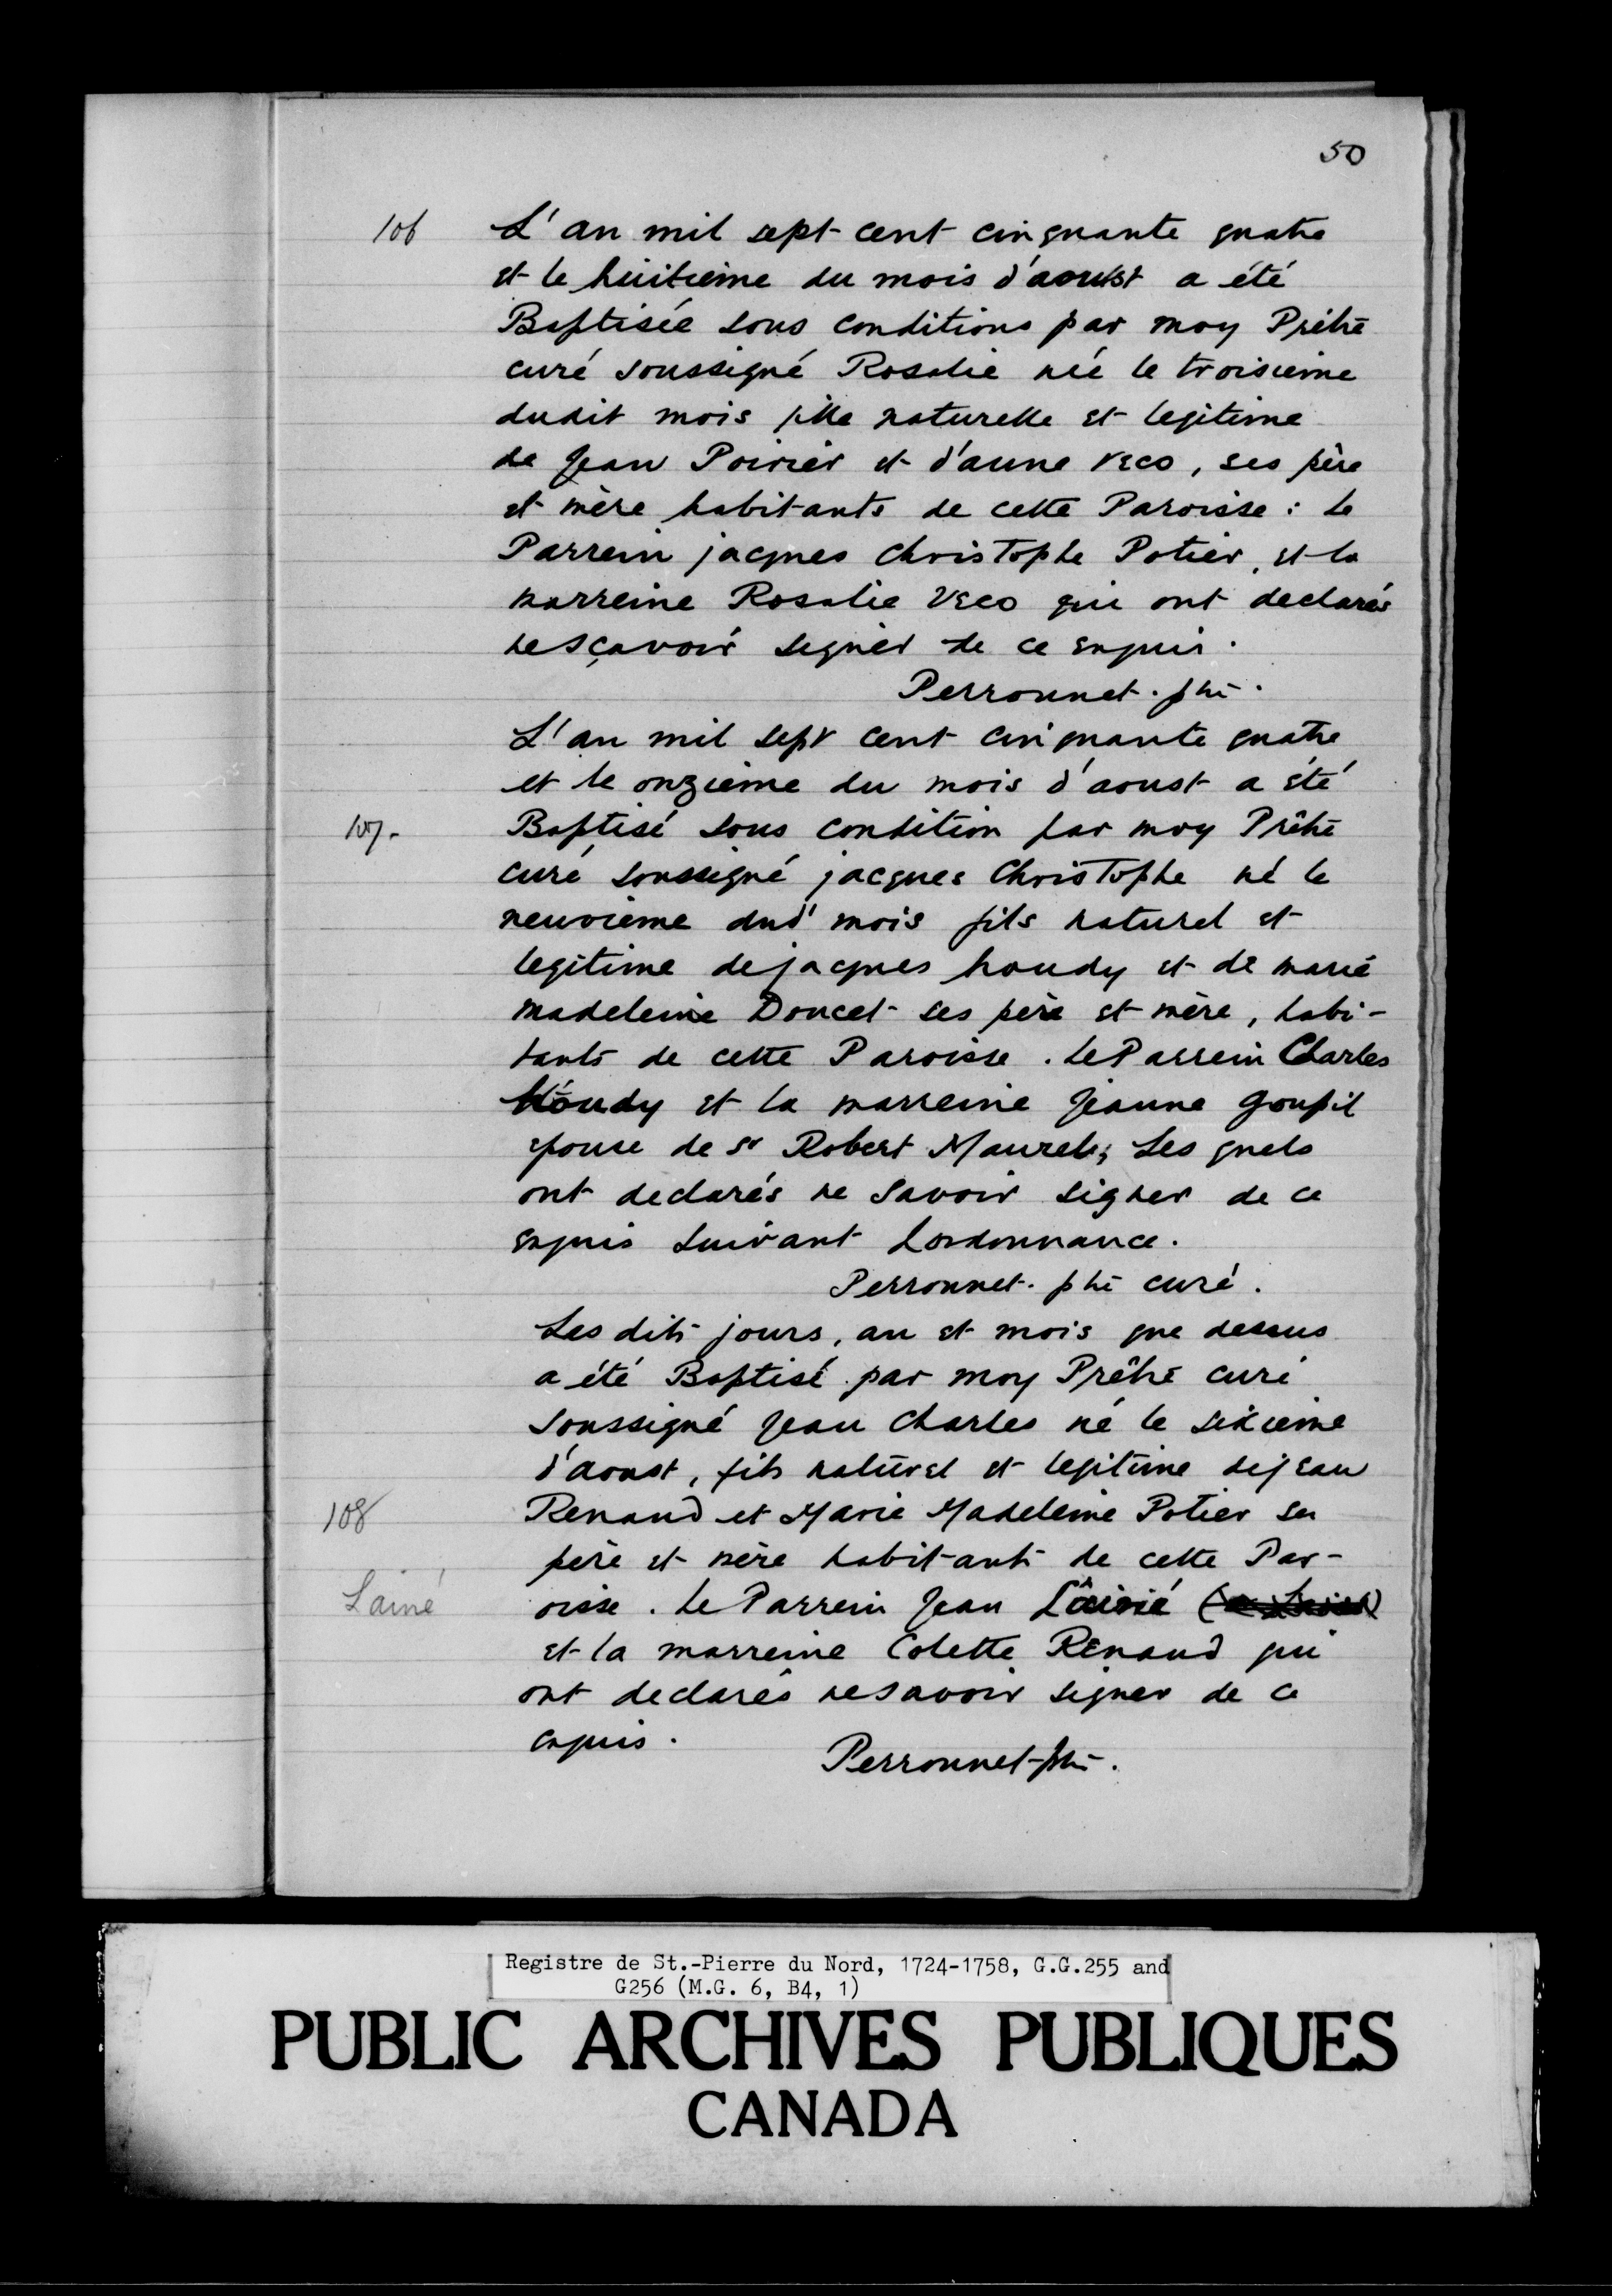 50
106
L'an mil sept cent cinquante quatre
et le huitième du mois d'aoust a été
Baptisée sous conditions par moy Prêtre
curé soussigné Rosalie née le troisieme
dudit mois fille naturelle et legitime
de Jean Poirier et d'anne veco, ses père
et mère habitants de cette Paroisse : le
Parrein jacques christophe Potier, et la
marreine Rosalie Veco qui ont declarés
nesçavoir signer de ce enquis.
Perronnet. ptre.
L'an mil sept cent cinquante quatre
et le onzieme du mois d'aoust a été
107.
Baptisé sous condition par moy Prêtre
curé soussigné jacques Christophe né le
neuvieme dud' mois fils naturel et
legitime dejacques houdy et de marie
madeleine Doucet ses père et mère, habi-
tants de cette Paroisse. LeParrein Charles
Houdy et la marreine Jeanne Goupil
epouse de Sr Robert Maurel, Les quels
ont declarés ne savoir signer de ce
enquis suivant Lordonnance.
Perronnet. ptre curé.
Les dits jours, an et mois que dessus
a été Baptisé par moy Prêtre curé
soussigné Jean Charles né le sixieme
d'aoust, fils naturel et legitime dejean
108
Renaud et Marie Madeleine Potier ses
père et mère habitants de cette Par-
Lainé
oisse. Le Parrein Jean Lainé
et la marreine Colette Renaud qui
ont declarés nesavoir signer de ce
enquis.
Perronnet ptre.
Registre de St.-Pierre du Nord, 1724-1758, G.G.255 and
G256 (M.G. 6, B4, 1)
PUBLIC ARCHIVES PUBLIQUES
CANADA